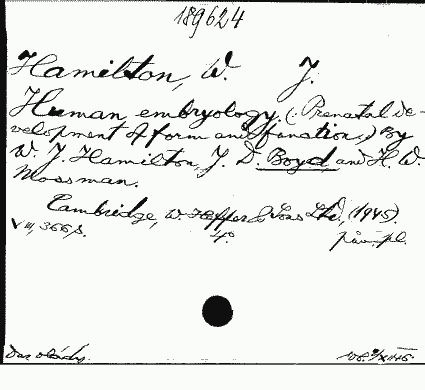 189624
Hamilton, W. J.
Human embryology. (: Prenatal de-
velopment of form and function.) By
W. J. Hamilton, J. D. Boyd, and H. W.
Mossman.
Cambridge, W. Heffer & Sons Ltd., (1945).
VIII, 366 p. 4°